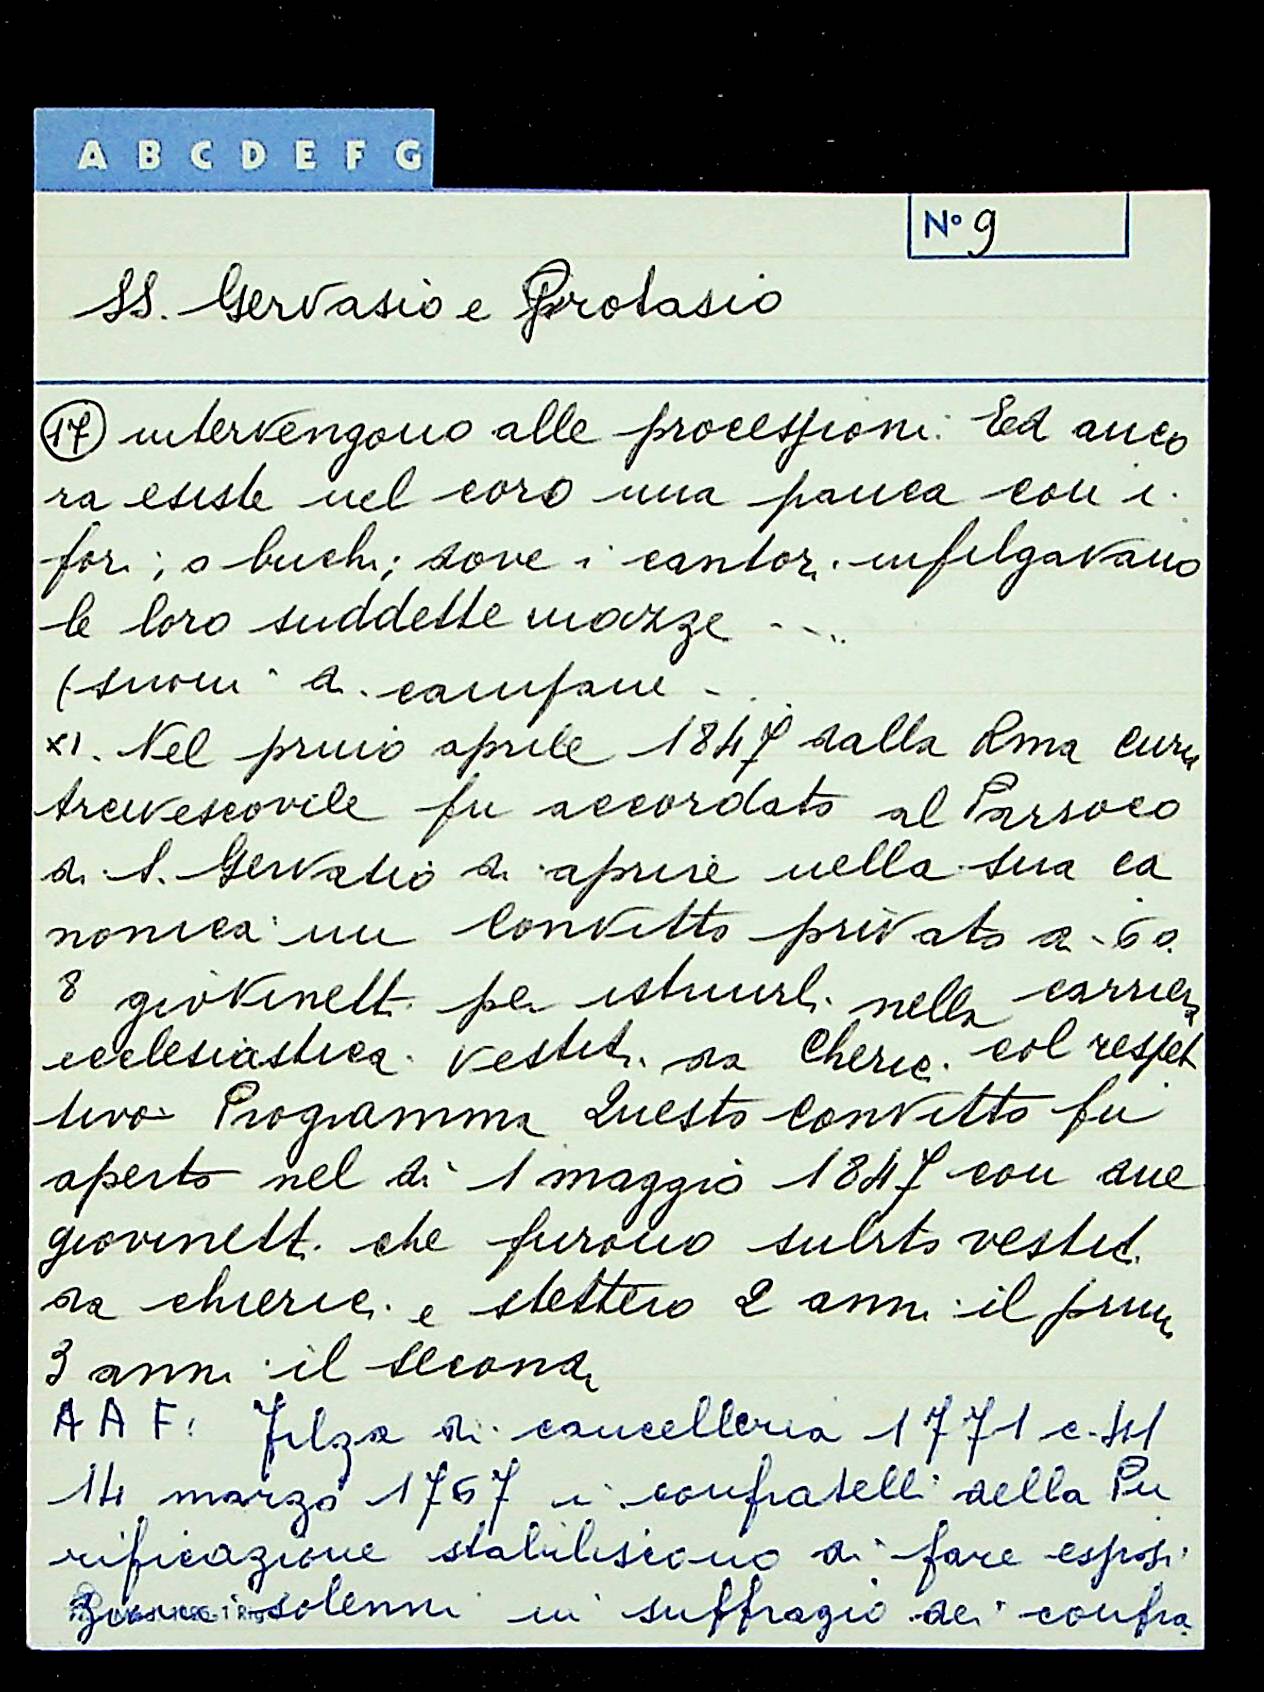 A B C D E F G
Nº 9
SS. Gervasio e Protasio
17 intervengono alle processioni. Ed anco
ra esiste nel coro una panca con i
fori; o buchi; dove i cantori infilgavano
le loro suddette mazze ....
(suoni di campane - .
XI. Nel primo aprile 1847 dalla Rma Curia
Arcivescovile fu accordato al Parroco
di S. Gervasio di aprire nella sua ca
nonica un Convitto privato a 6 o
8 giovinetti per istruirli nella carriera
ecclesiastica vestiti da Cherici col respet
tivo Programma Questo convitto fu
aperto nel dì 1 maggio 1847 con due
giovinetti che furono subito vestiti
da chierici e stettero 2 anni il primo
3 anni il secondo
A A F: Filza di cancelleria 1771 c.
14 marzo 1767 i confratelli della Pu
rificazione stabiliscono di fare esposi
zione solenni in suffragio dei confra